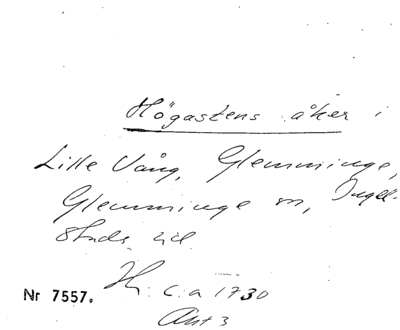 Högastens åker i
Lille Vång, Glemminge,
Glemminge sn, Ingel-
stads hd
Nr 7557.
H: c.a 1730
Ant 3